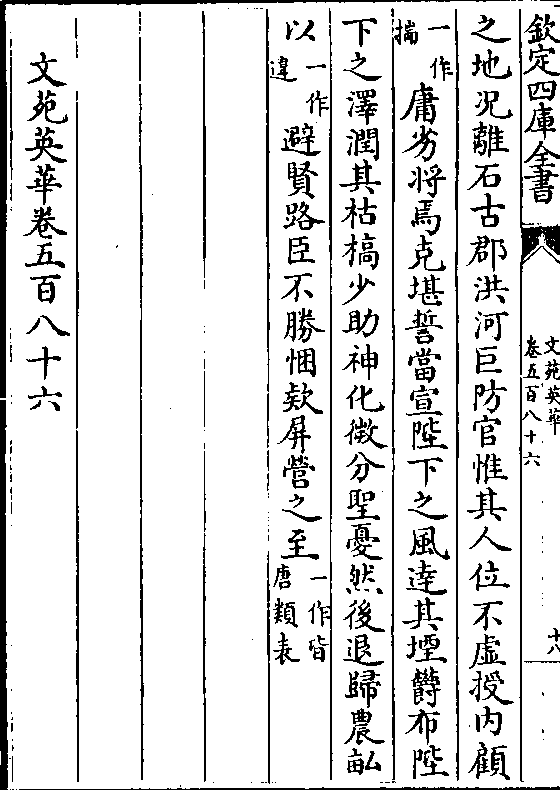 欽定四庫全書
文苑英華
卷五百八十六
十八
之地况離石古郡洪河巨防官惟其人位不虛授内顧
一作揣庸劣將焉克堪誓當宣陛下之風達其堙欝布陛
下之澤潤其枯槁少助神化微分聖憂然後退歸農畝
以一作違避賢路臣不勝悃欵屏營之至一作皆唐類表
文苑英華卷五百八十六